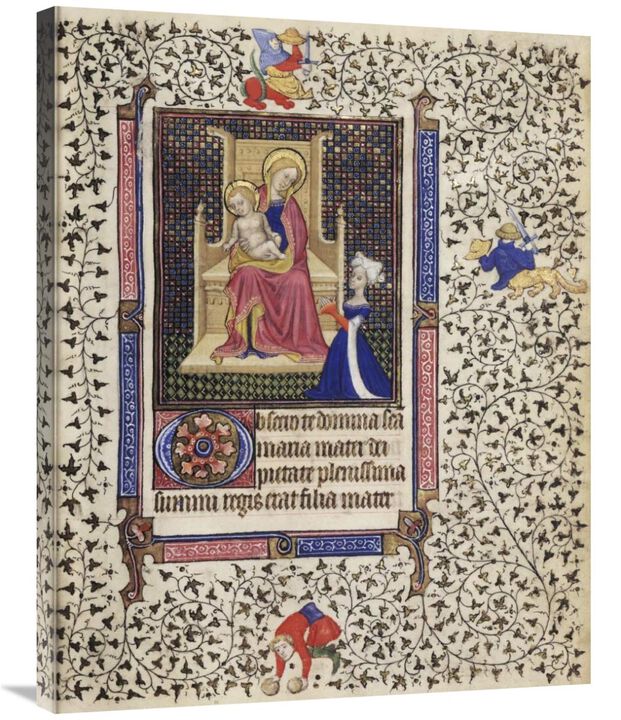 Obsecro te domina sca
maria mater dei
pietate plenissima
summi regis etat filia mater